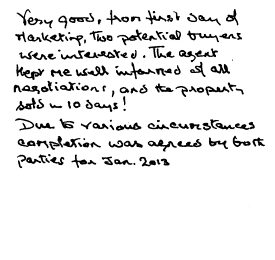 Very good, from first day of
Marketing, two potential buyers
were interested. The agent
kept me well informed of all
negotiations, and the property
sold in 10 days!
Due to various circumstances
completion was agreed by both
parties for Jan. 2013